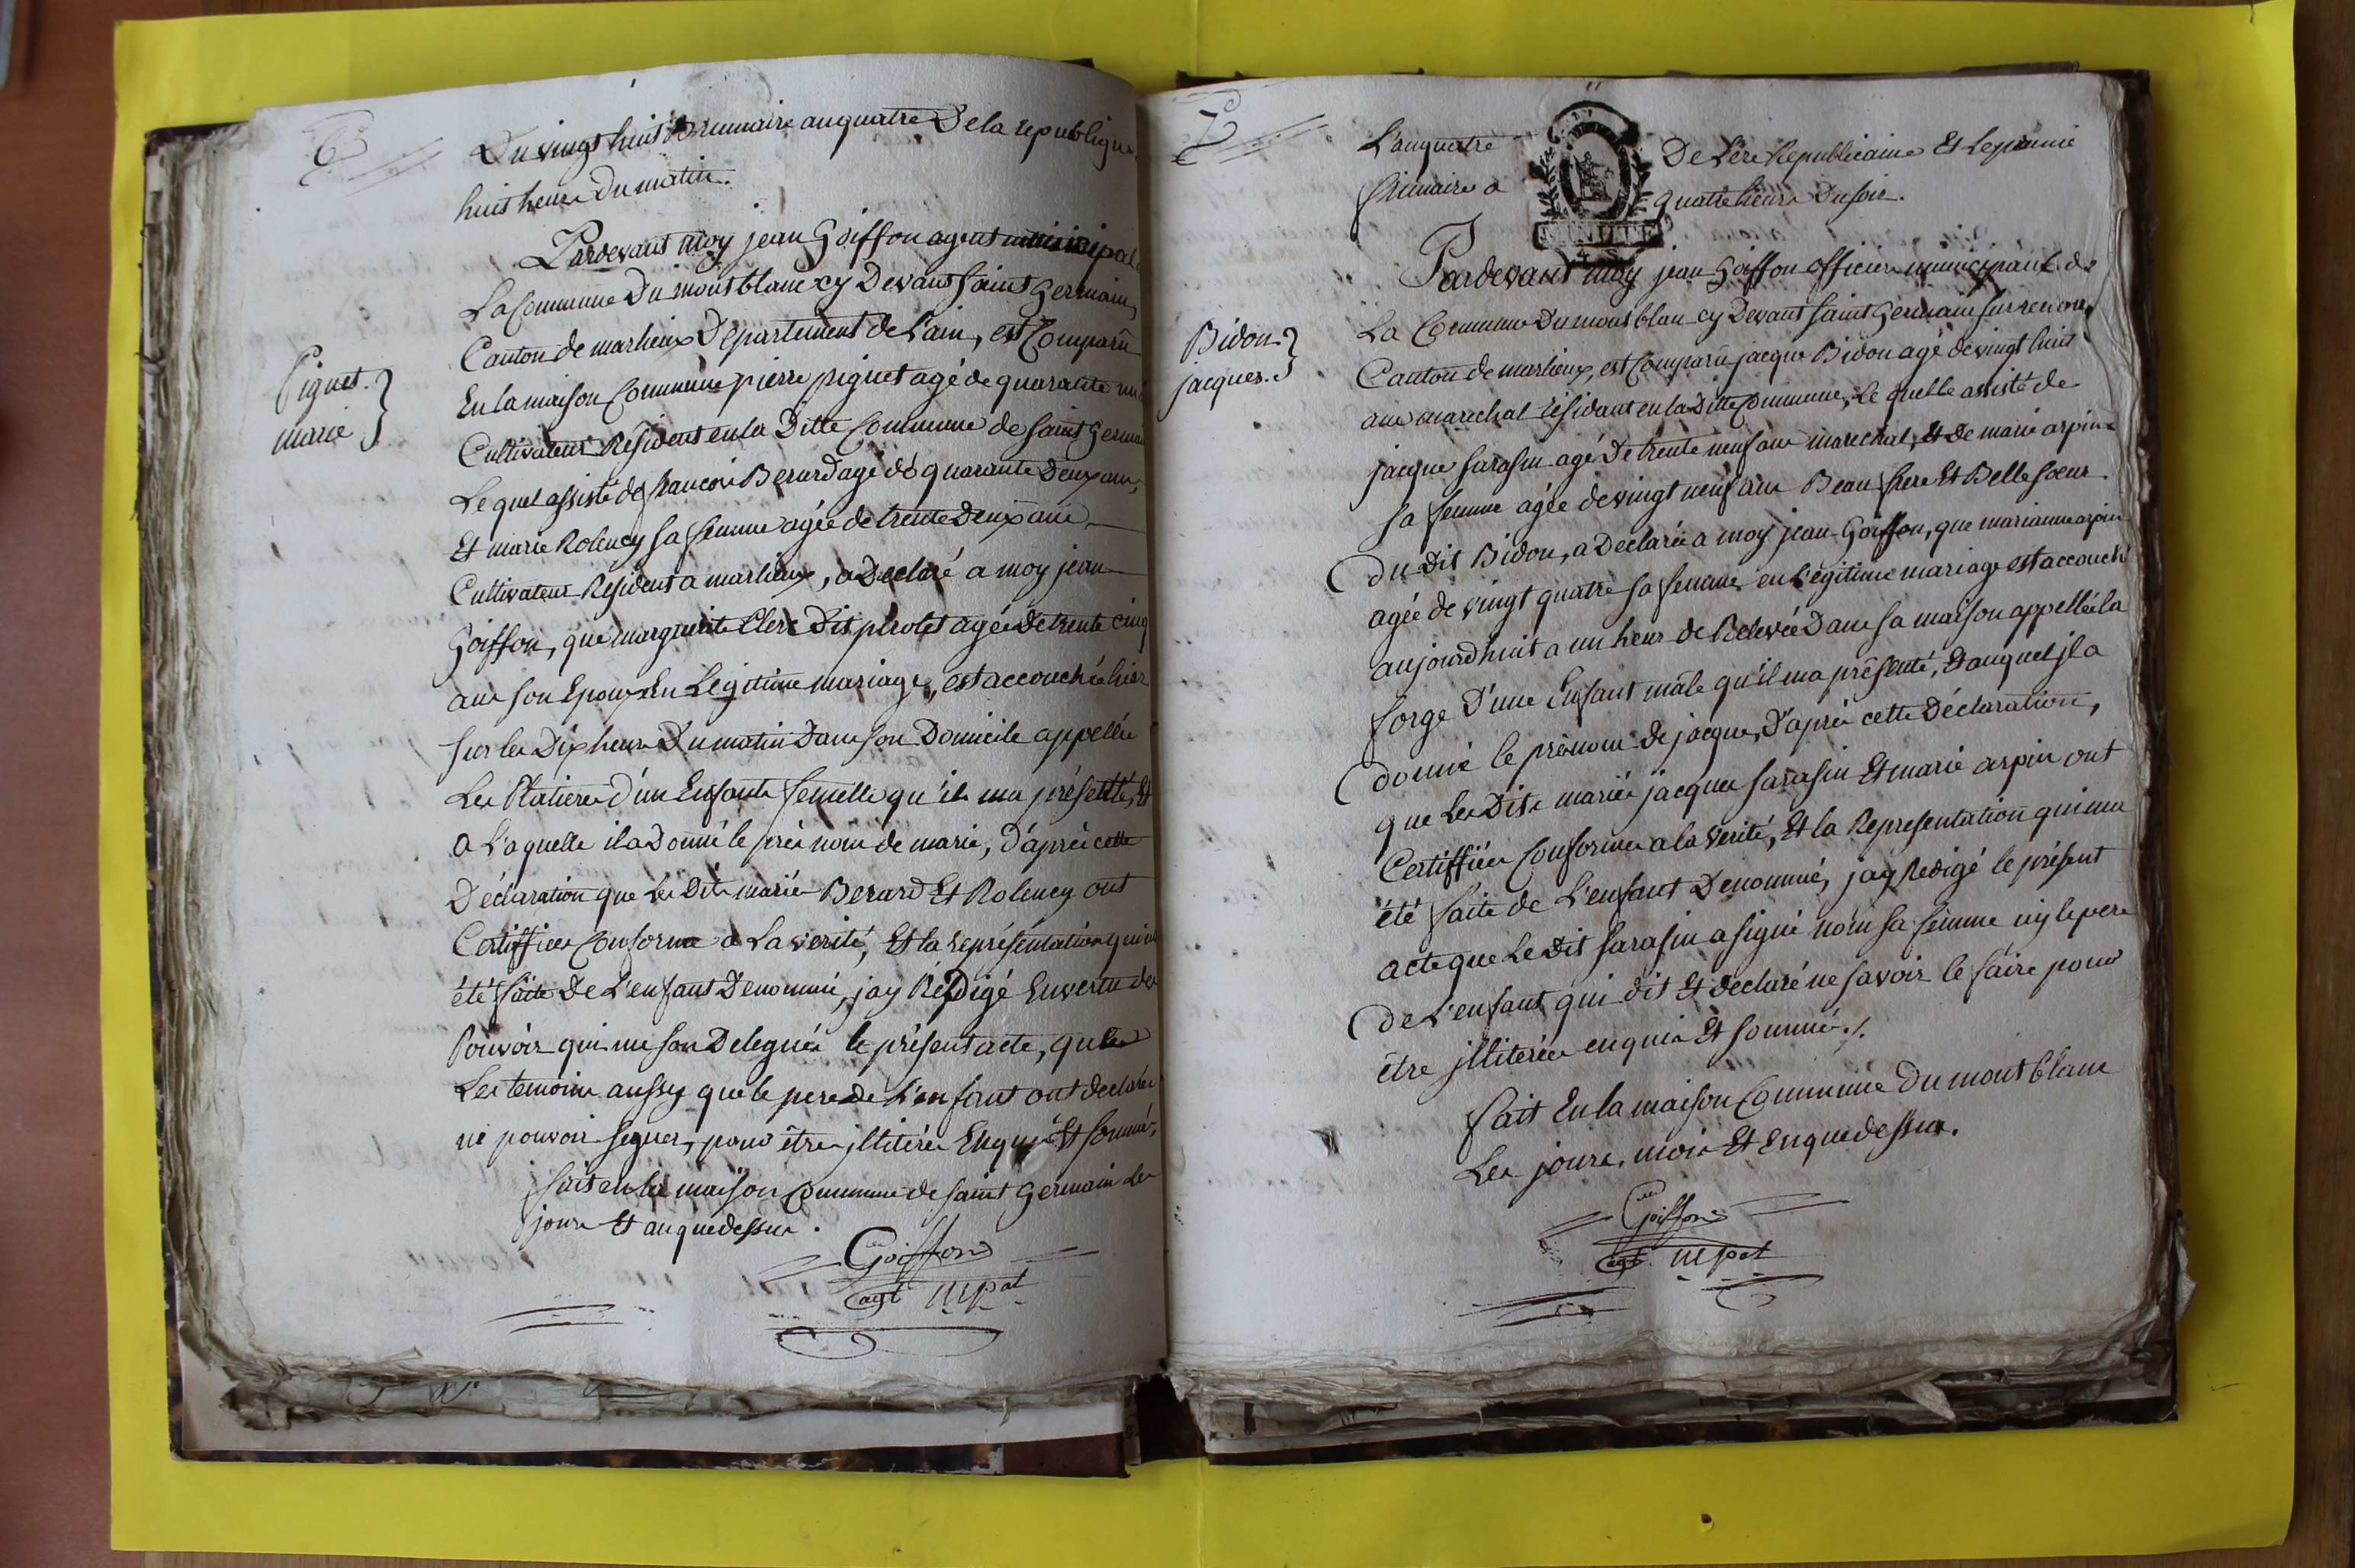 6
Du vingt huit Brumaire an quatre De la republique
huit heure du matin.
Pardevant moy jean Goiffon agent municipal
La Commune Du mont blanc cy Devant saint germain
Canton de marlieux Departement de L'ain, est Comparu
En la maison Commune pierre piguet agé de quarante
Cultivateur Résident en la Ditte Commune de saint Germ
Le quel assisté de francois Berard agé de quarante Deux ans,
Et marie Roleney sa femme agée de trente Deux ans
Cultivateur Résident a marlieux, a Declaré a moy jean
Goiffon, que marguerite Clerc Dit perolet agée de trente cinq
ans son Epouse En Legitime mariage, est accouchée hier
sur les Dix heures Du matin Dans son Domicile appellée
Les Platieres d'un Enfante femelle qu'il ma présenté, Et
a L'aquelle il a Donné le pré nom de marie, d'après cette
Déclaration que les Dits mariés Berard Et Roleney ont
Certiffiée Conforme a La verité, Et la représentation qui m
été faite De L'enfant Denommé, jay Rédigé En vertu des
Pouvoir qui me son Delegués le présent acte, que
Les temoins aussy que le pere de L'enfant ont declarer
ne pouvoir signer, pour être illiterés Enquis Et sommé,
fait en la maison Commune de saint Germain les
jours Et an que dessus.
Goiffon
agt mpal
Piguet.
marie
7
L'an quatre De L'ère Republicaine Et Le premie
frimaire a quatre heures Du soir.
Pardevant moy jean Goiffon officier municipaux de
La Commune Du mont blan cy Devant saint Germain sur renom,
Canton de marlieux, est Comparu jacque Bidon agé de vingt huit
ans marechal résidant en la Ditte Commune, Le quelle assisté de
jacque sarasin agé De trente neuf ans marechal, Et de marie arpin
sa femme agée de vingt neuf ans Beau frere Et Belle sœur
du dit Bidon, a Declarée a moy jean Goiffon, que marianne arpin
agée de vingt quatre sa femme en Légitime mariage est accouché
aujourdhuit a un heur de Relevée Dans sa maison appellée la
forge D'une Enfant mâle qu'il ma présenté, Et auquel jl a
donné le prénom de jacque, D'après cette Déclaration,
que Les Dits mariés jacque sarasin Et marie arpin ont
Certiffiée Conforme a la verité, Et la Representation qui ma
été faite de L'enfant Denommé, jay Redigé le présent
acte que Le Dit sarasin a signé nom sa femme ny le pere
de L'enfant qui dit Et declaré ne savoir le faire pour
être jlliterée enquis Et sommés ./.
fait En la maison Commune Du mont blanc
Les jours, mois Et en que dessus.
Goiffon
agt mpal
Bidon
jacques.